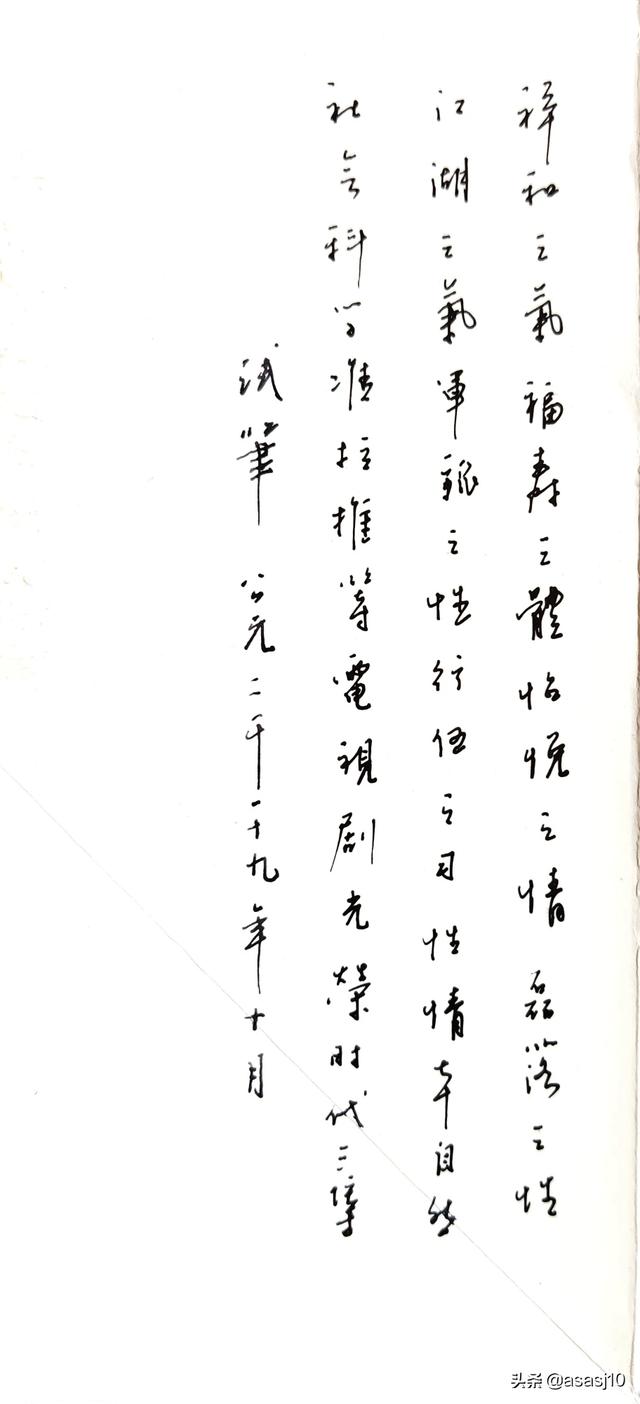 祥和之氣福壽之體怡悦之情磊落之性
江湖之氣軍魂之性行伍之司性情本自然
社会科学准拉推等電視劇光榮时代三集
试筆 公元二千一十九年十月
头条 @asasj10